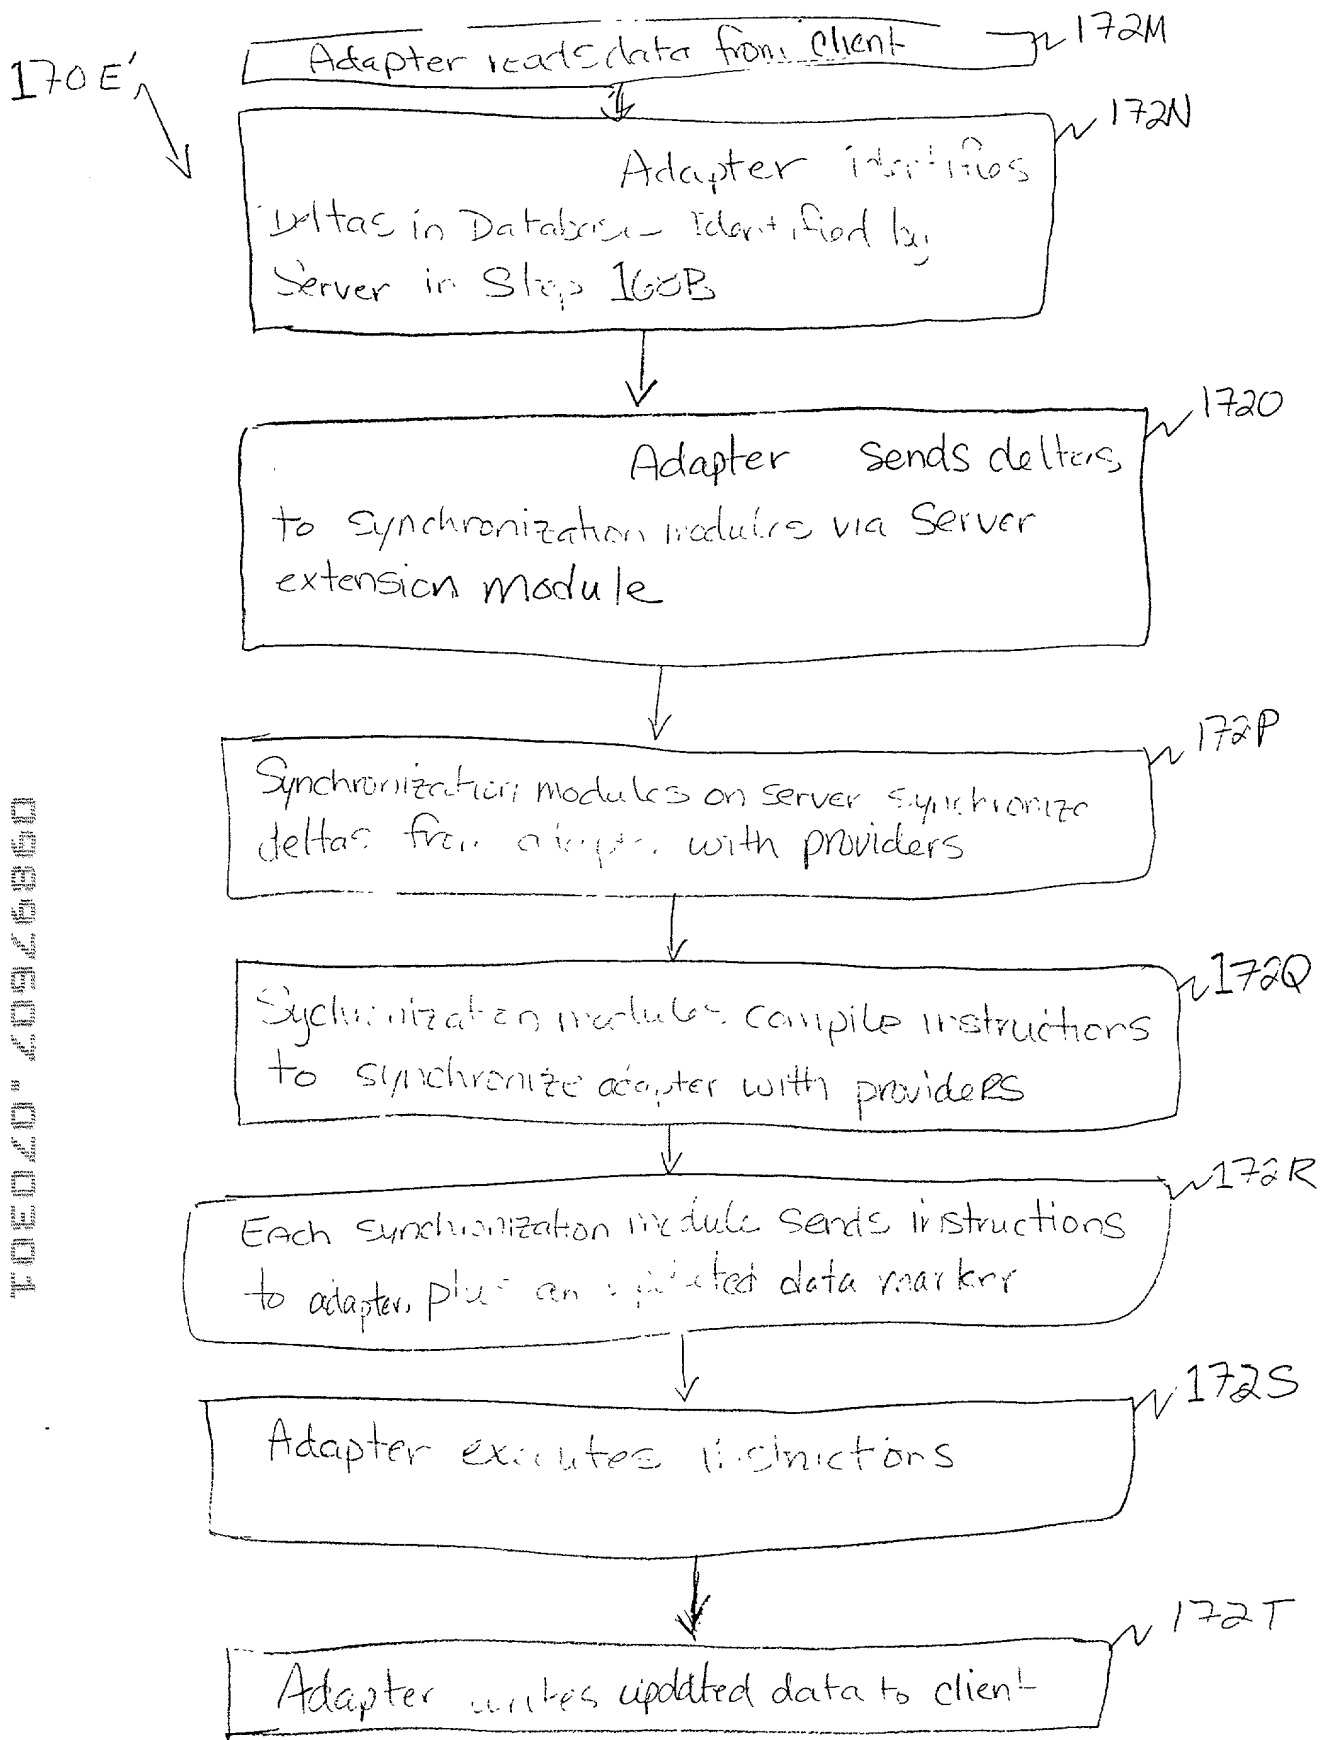 170E'
Adapter reads data from client
172M
172N
Adapter identifies
Deltas in Database Identified by
Server in Step 160B
172O
Adapter sends deltas
to synchronization modules via Server
extension module
172P
Synchronization modules on server synchronize
deltas from adapter with providers
172Q
Sychronization modules compile instructions
to synchronize adapter with providers
172R
Each synchronization module sends instructions
to adapter, plus an updated data marker
172S
Adapter executes instructions
172T
Adapter writes updated data to client
09897507.070301